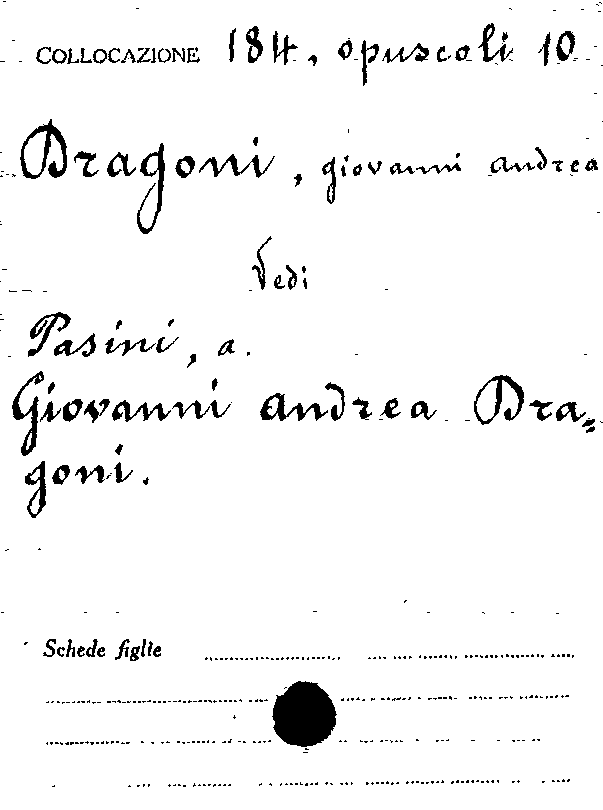 COLLOCAZIONE 184, opuscoli 10
Dragoni, giovanni andrea
Vedi
Pasini, a.
Giovanni andrea Dra=
goni.
Schede figlie